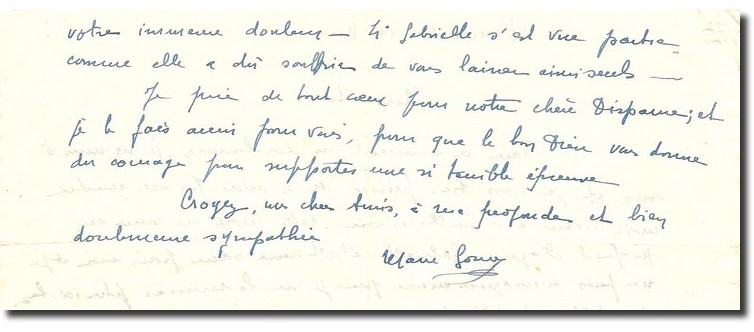 votre immense douleur — Si Gabrielle s'est vue partir
comme elle a dû souffrir de vous laisser ainsi seuls —
Je prie de tout cœur pour notre chère Disparue, et
je le fais aussi pour vous, pour que le bon Dieu vous donne
du courage pour supporter une si terrible épreuve
Croyez, mes chers Amis, à ma profonde et bien
douloureuse sympathie
Marie